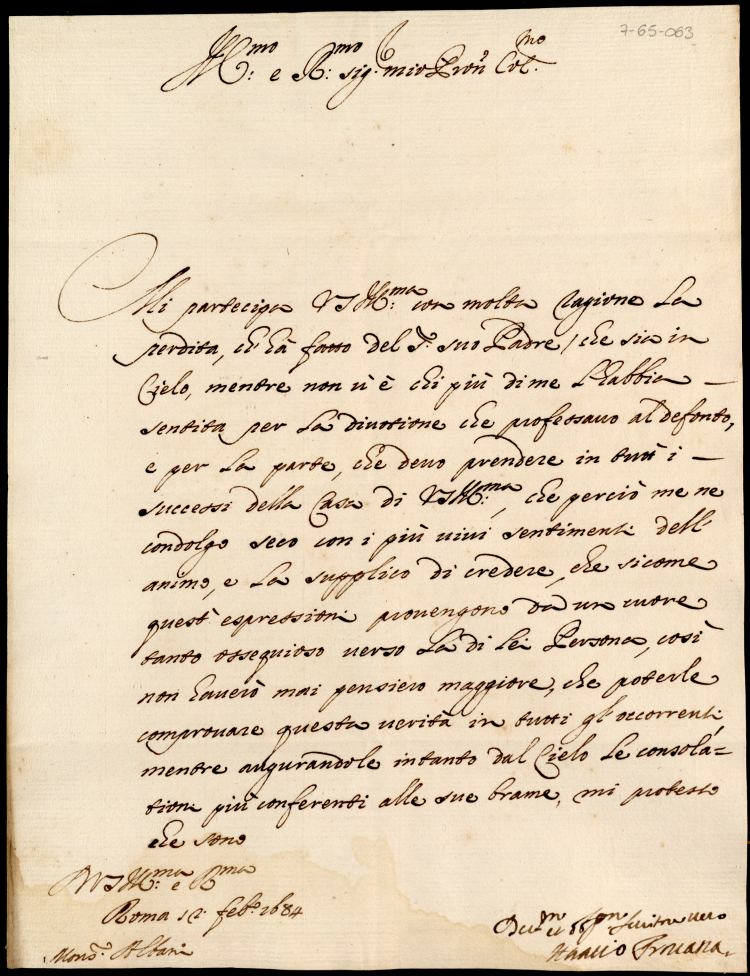 7-65-063
Ill.mo e R.mo sig. mio Pron Col.mo
Mi partecipa V S Ill.ma con molta ragione la
perdita, ch' hà fatto del S.r suo Padre / che sia in
Cielo, mentre non vi è chi più di me l'habbia —
sentita per la divotione che professavo al defonto,
e per la parte, che devo prendere in tutti i —
successi della Casa di V S Ill.ma, che perciò me ne
condolgo seco con i più vivi sentimenti dell'
animo, e la supplico di credere, che sicome
quest' espressioni provengono da un cuore
tanto ossequioso verso la di lei Persona, così
non haverò mai pensiero maggiore, che poterle
comprovare questa verità in tutti gl' occorrenti,
mentre augurandole intanto dal Cielo le consola=
tioni più conferenti alle sue brame, mi protesto
che sono
D V S Ill.ma e R.ma
Roma 12 feb.o 1684
Mons.r Albani
Dev.mo et Obl.mo servitore vero
Provana